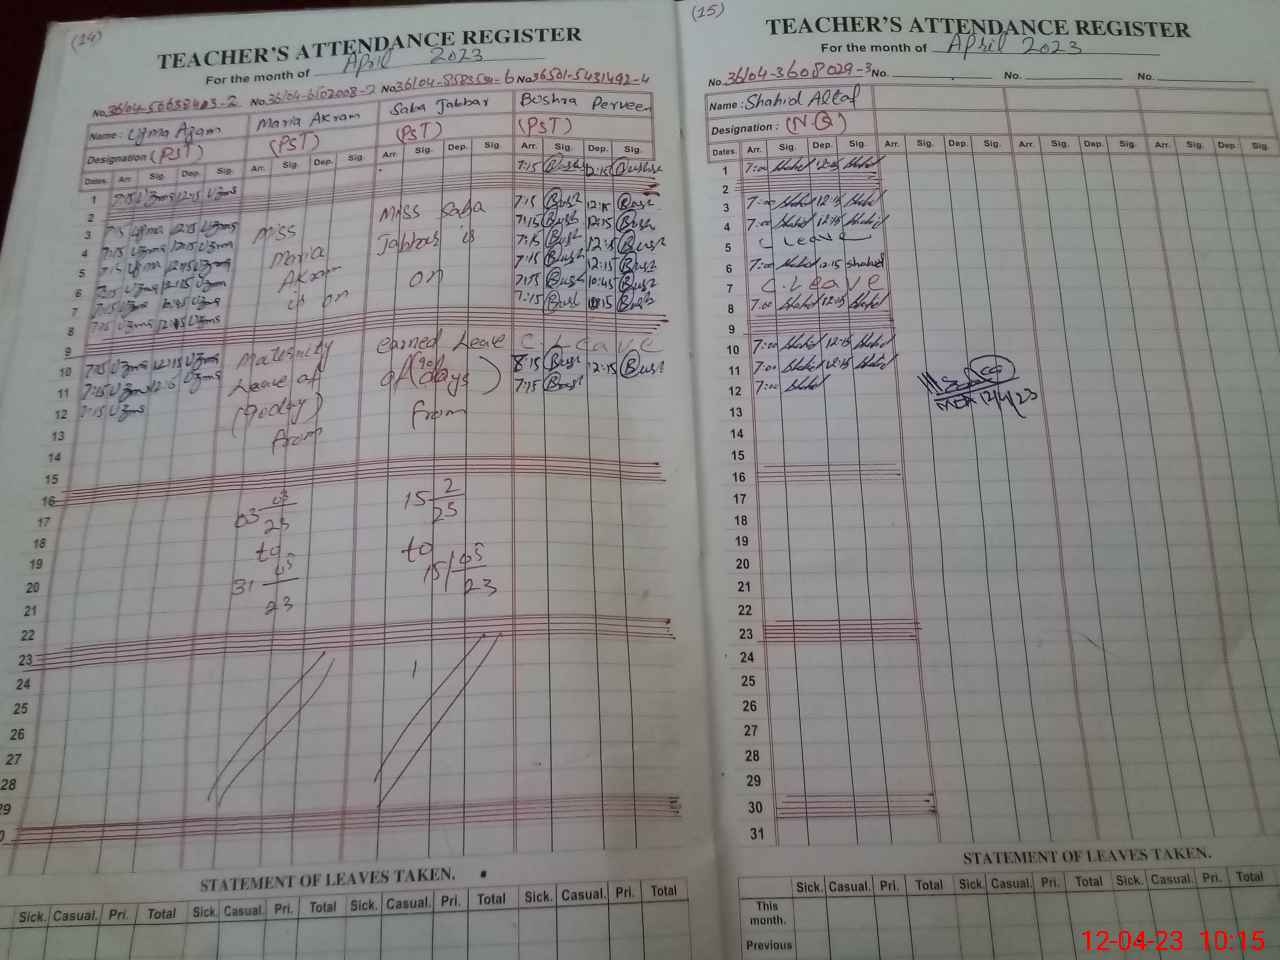 (14)
TEACHER'S ATTENDANCE REGISTER
For the month of April 2023
No. No.36104-6102008-2 No.36104-8583581-6 No.36501-5431492-4
Name: Uzma Azam Maria Akram Saba Jabbar Bushra Perveen
Designation (PST) (PST) (PST) (PST)
Dates. Arr. Sig. Dep. Sig. Arr. Sig. Dep. Sig. Arr. Sig. Dep. Sig. Arr. Sig. Dep. Sig.
1 7:15 Uzma 12:15 Uzma 7:15 Bush 12:15 Bushra
2
3 7:15 Uzma 12:15 Uzma Miss Miss Saba 7:15 Bush 12:15 Bush
4 7:15 Uzma 12:15 Uzma Maria Jabbar is 7:15 Bush 12:15 Bush
5 7:15 Uzma 12:15 Uzma Akram on 7:15 Bush 12:15 Bush
6 7:15 Uzma 12:15 Uzma is on 7:15 Bush 12:15 Bush
7 7:15 Uzma Uzma 7:15 Bush 10:45 Bush
8 7:15 Uzma 12:15 Uzma 7:15 Bush 12:15 Bush
9
10 7:15 Uzma 12:15 Uzma Maternity earned Leave C. Leave
11 7:15 Uzma 12:15 Uzma Leave of of (90 days) 8:15 Bush 12:15 Bush
12 7:15 Uzma (90 day) from 7:15 Bush
13 from
14
15
16
17 03 03/23 15 2/23
18
19 to to
20 31 05/23 15/05/23
21
22
23
24
25
26
27
28
29
STATEMENT OF LEAVES TAKEN.
Sick. Casual. Pri. Total Sick. Casual. Pri. Total Sick. Casual. Pri. Total Sick. Casual. Pri. Total
(15)
TEACHER'S ATTENDANCE REGISTER
For the month of April 2023
No.36104-3608029-3 No. No. No.
Name: Shahid Altaf
Designation: (N.Q)
Dates. Arr. Sig. Dep. Sig. Arr. Sig. Dep. Sig. Arr. Sig. Dep. Sig. Arr. Sig. Dep. Sig.
1 7:00 Shahid 12:15 Shahid
2
3 7:00 Shahid 12:15 Shahid
4 7:00 Shahid 12:15 Shahid
5 C Leave
6 7:00 Shahid 12:15 Shahid
7 C. Leave
8 7:00 Shahid 12:15 Shahid
9
10 7:00 Shahid 12:15 Shahid
11 7:00 Shahid 12:15 Shahid
12 7:00 Shahid
13 12/4/23
14
15
16
17
18
19
20
21
22
23
24
25
26
27
28
29
30
31
STATEMENT OF LEAVES TAKEN.
Sick. Casual. Pri. Total Sick. Casual. Pri. Total Sick. Casual. Pri. Total
This month.
Previous
12-04-23 10:15